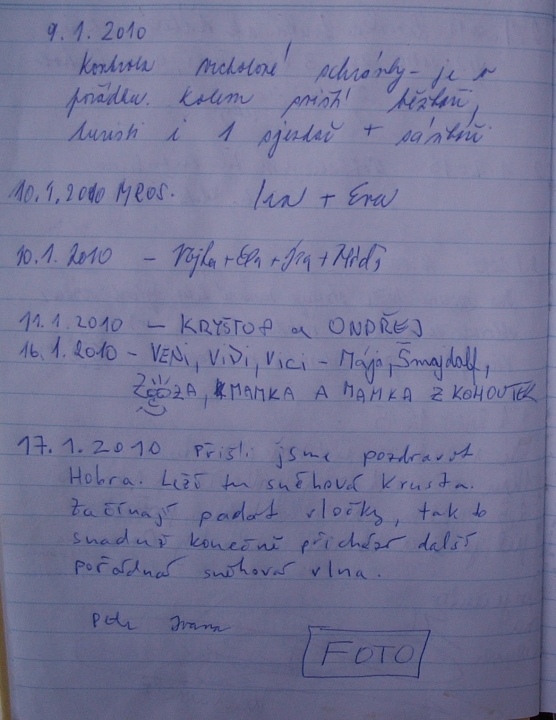 9.1.2010
Kontrola vrcholové schránky - je v
pořádku. Kolem prošli běžkaři,
turisti i 1 sjezdař + sáňkaři
10.1.2010 MROS. Iva + Eva
10.1.2010 - Vojta + Ela + Íra + Míďa
11.1.2010 - KRYŠTOF a ONDŘEJ
16.1.2010 - VENI, VIDI, VICI - Mája, Šmajdalf,
ZOZA, MAMKA A MAMKA Z KOHOUTEK
17.1.2010 Přišli jsme pozdravit
Hobra. Leží tu sněhová krusta.
Začínají padat vločky, tak to
snad už konečně přichází další
pořádná sněhová vlna.
Petr Ivana
FOTO